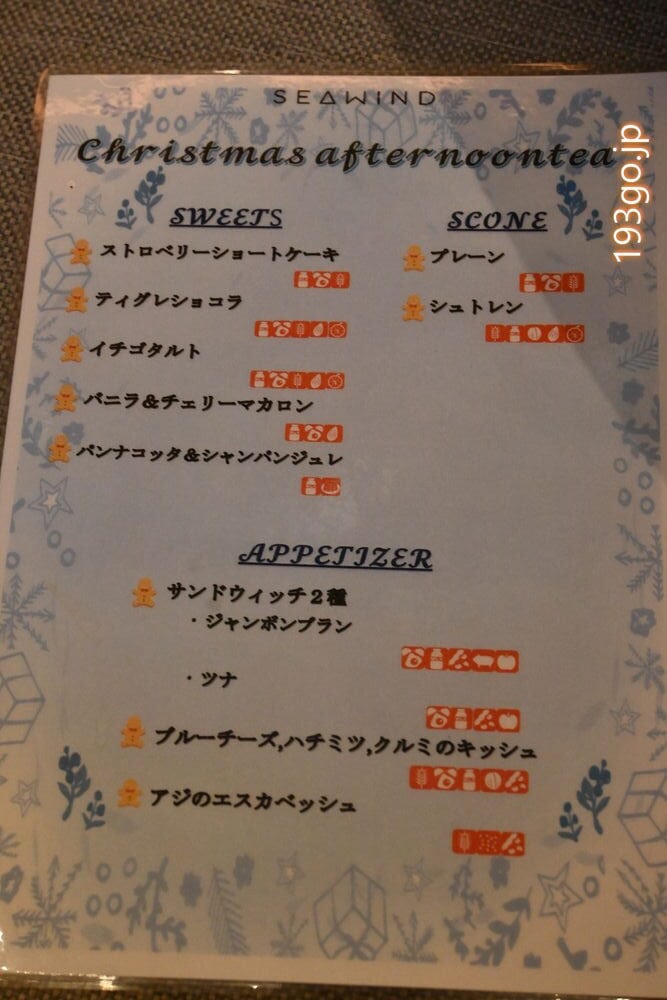 SEAWIND
Christmas afternoontea
SWEETS
ストロベリーショートケーキ
ティグレショコラ
イチゴタルト
バニラ&チェリーマカロン
パンナコッタ&シャンパンジュレ
SCONE
プレーン
シュトレン
APPETIZER
サンドウィッチ2種
・ジャンボンブラン
・ツナ
ブルーチーズ,ハチミツ,クルミのキッシュ
アジのエスカベッシュ
193go.jp